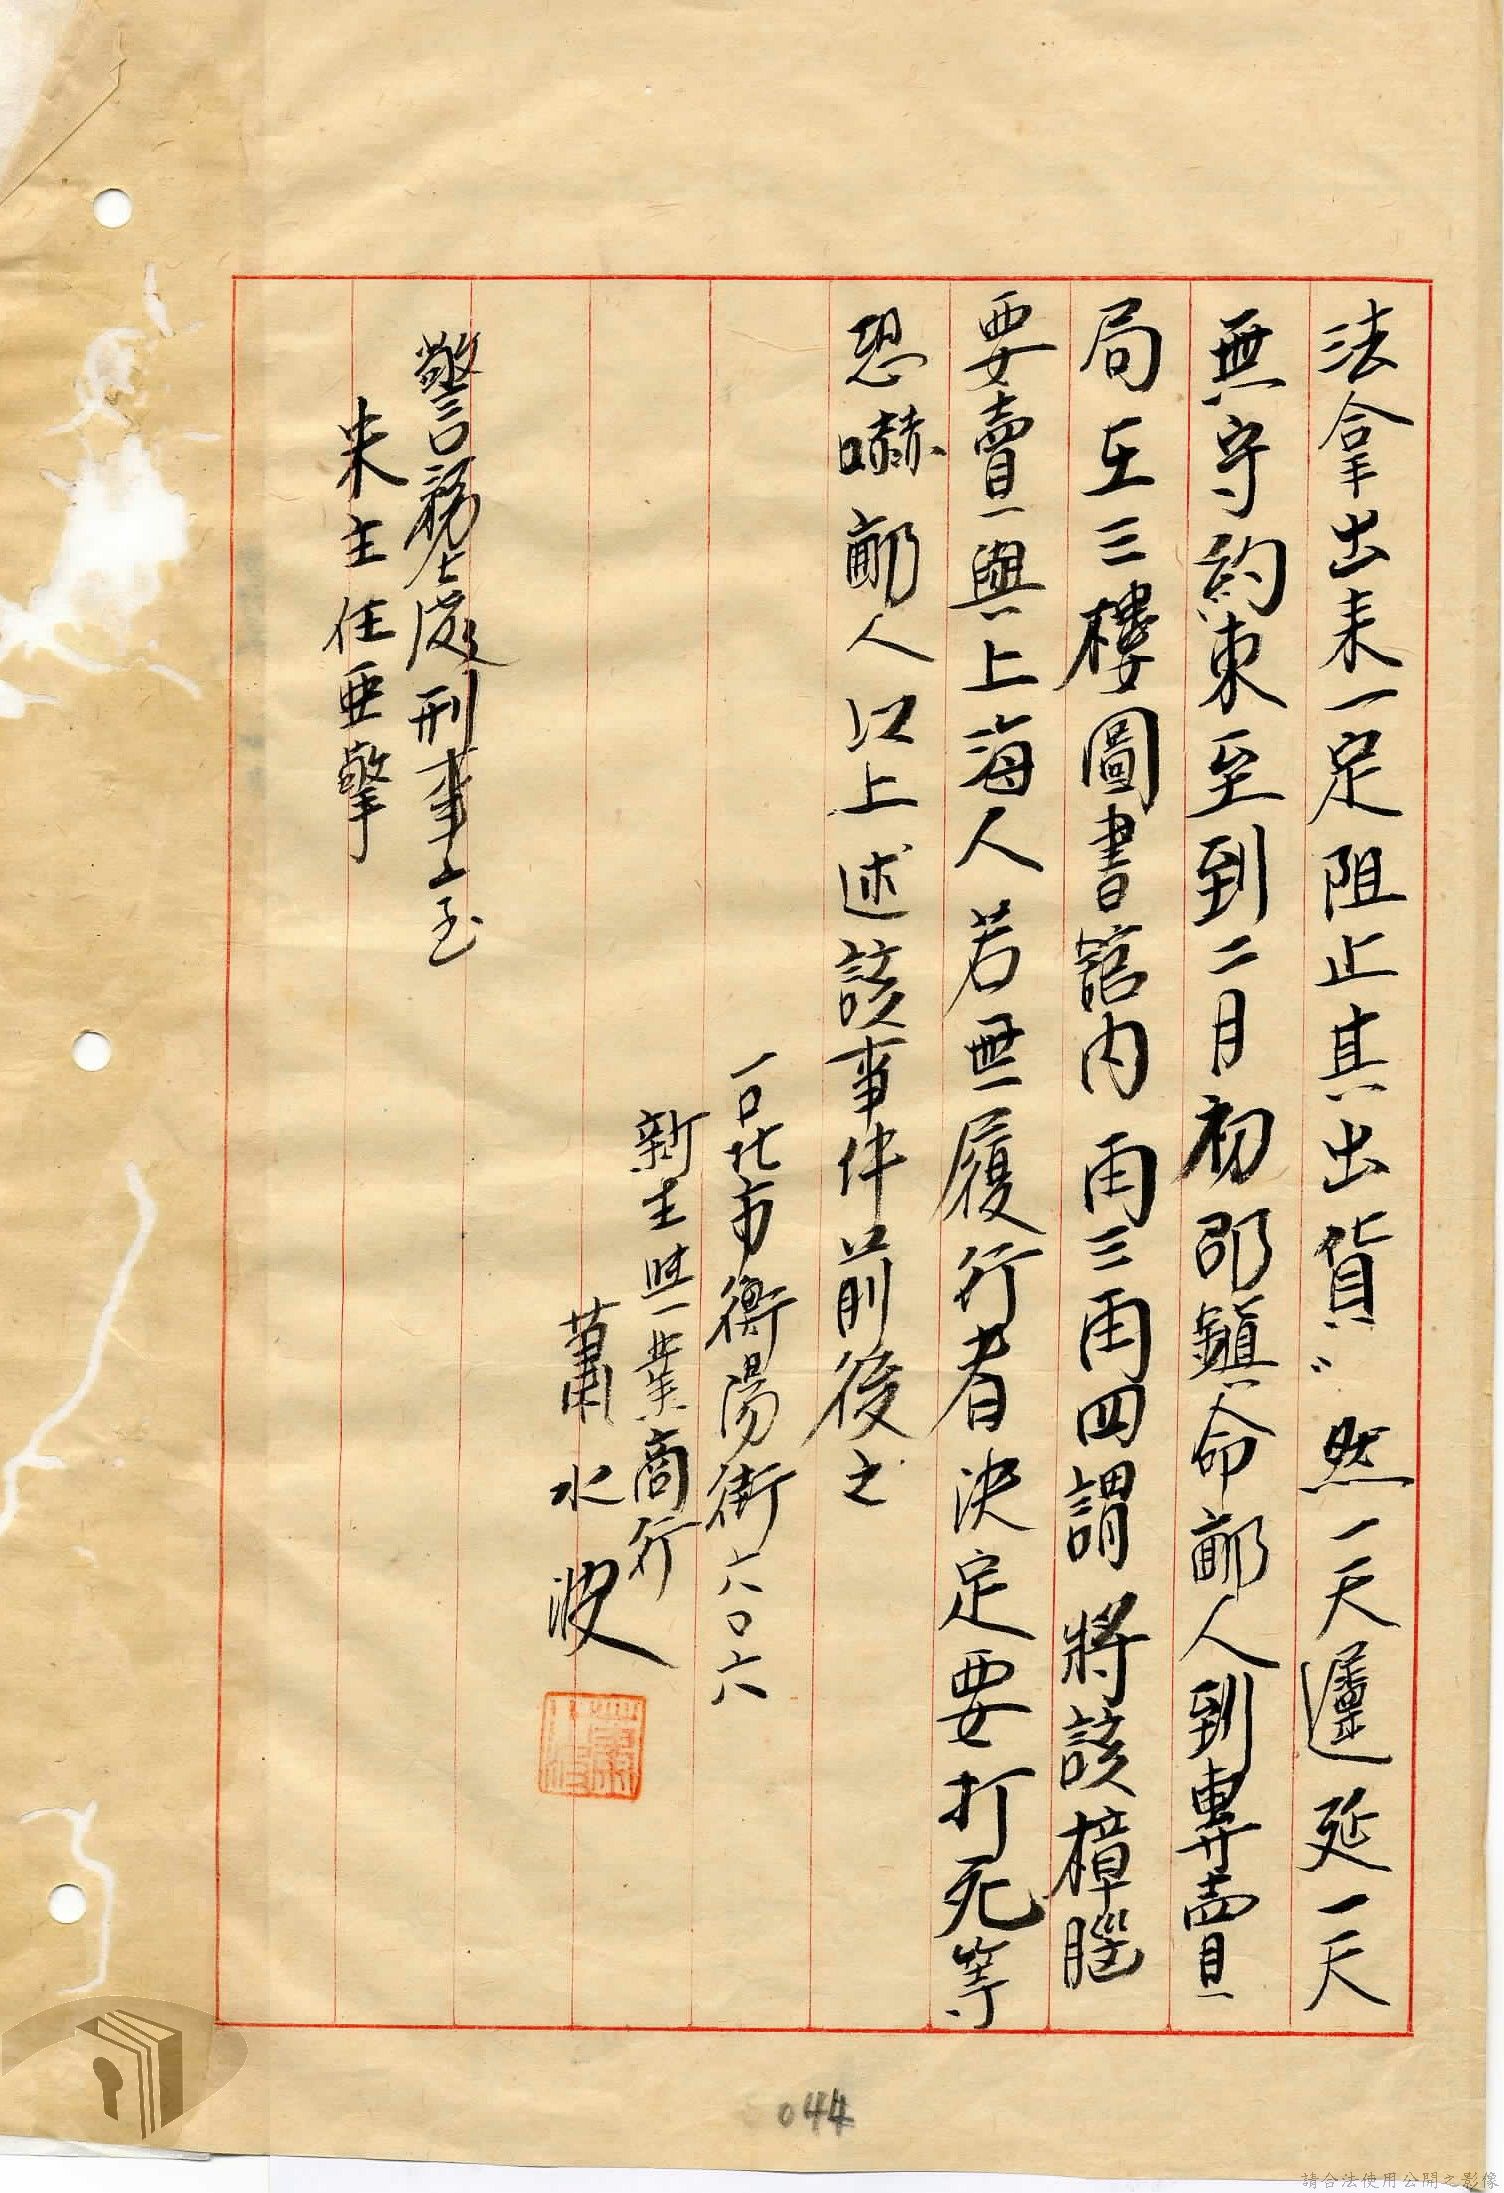 法拿出来一定阻止其出貨〟然一天遷延一天
無守約束至到二月初邵鎮命鄙人到專賣
局在三樓圖書舘内再三再四謂將該樟腦
要賣與上海人若無履行者決定要打死等
恐嚇鄙人以上述該事件前後之
台北市衡陽街六〇六
新生興業商行
蕭水波
警務處刑事室
朱主任亞擎
044
請合法使用公開之影像